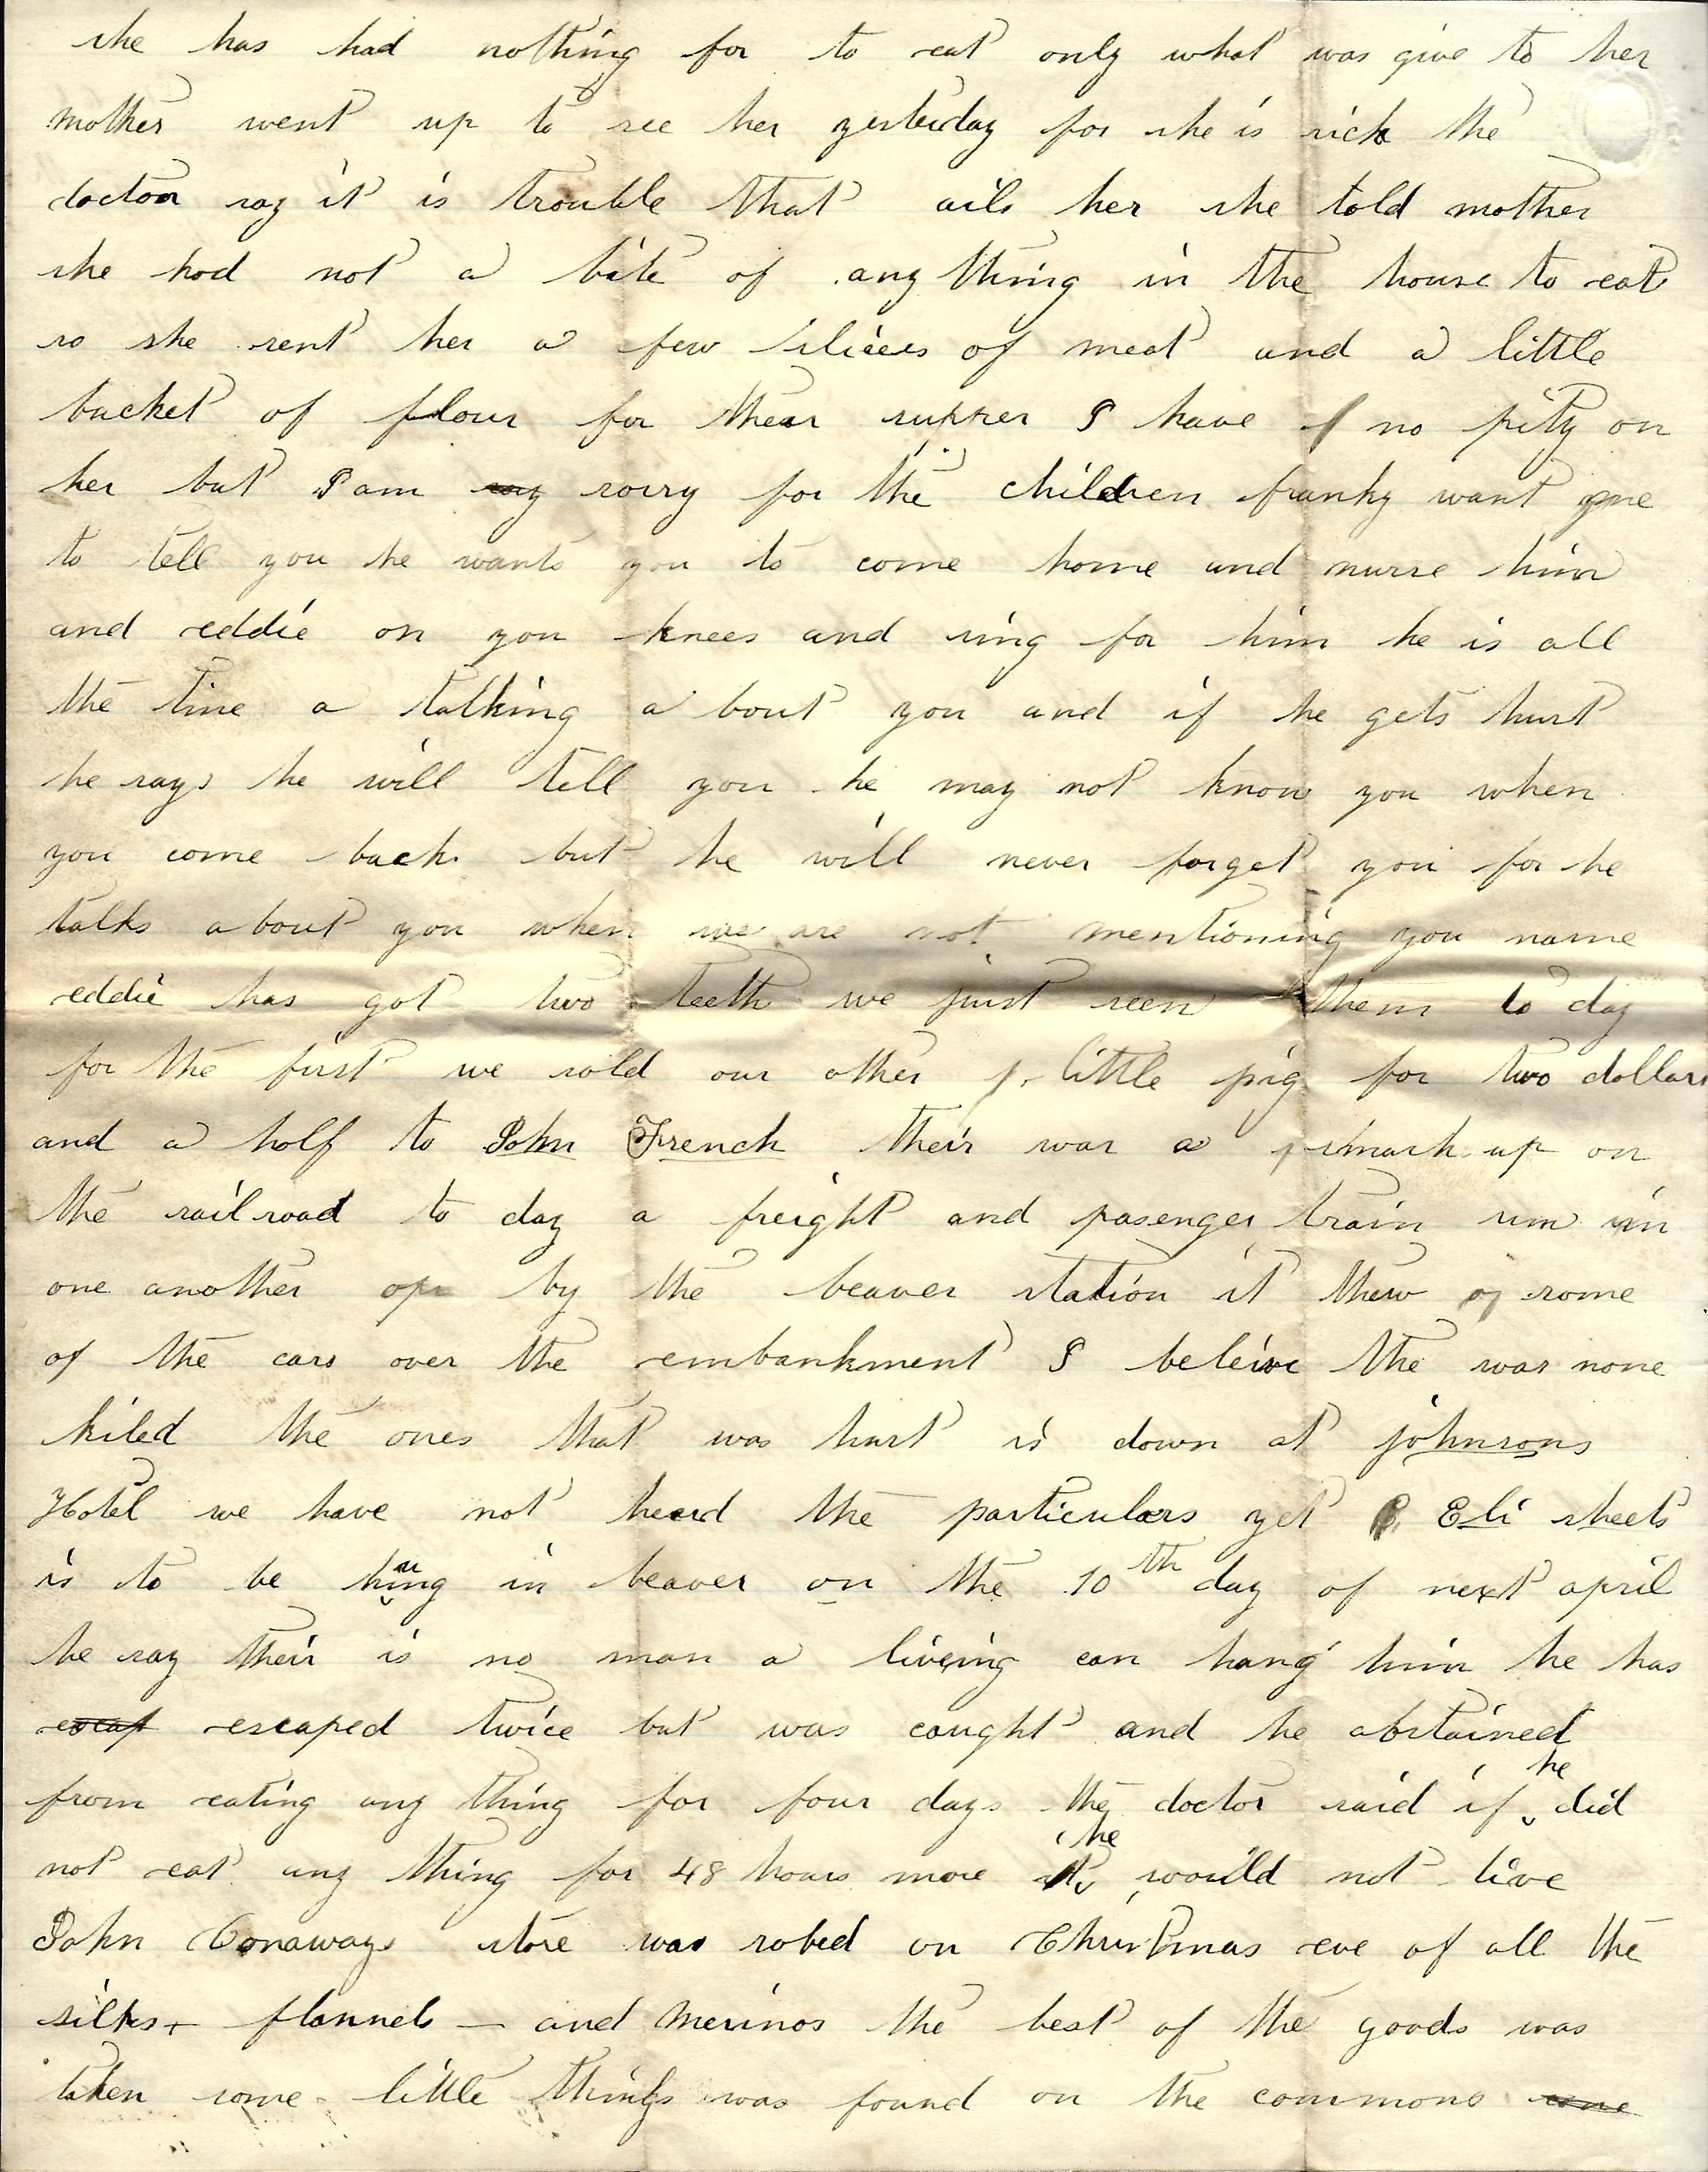 she has had nothing for to eat only what was give to her
mother went up to see her yesterday for she is sick the
doctor say it is trouble that ails her she told mother
she had not a bite of any thing in the house to eat
so she sent her a few slices of meat and a little
bucket of flour for thear supper I have no pity on
her but I am say sorry for the children franky want me
to tell you he wants you to come home and nurse him
and eddie on you knees and sing for him he is all
the time a talking a bout you and if he gets hurt
he says he will tell you he may not know you when
you come back but he will never forget you for he
talks a bout you when we are not mentioning you name
eddie has got two teeth we just seen them to day
for the first we sold our other little pig for two dollars
and a half to John French their was a smash up on
the rail road to day a freight and pasenger train run in
one another by the beaver station it thew some
of the cars over the embankment I beleive the was none
kiled the ones that was hurt is down at johnsons
Hotel we have not heard the particulars yet Eli sheets
is to be hung in beaver on the 10th day of next april
he say their is no man a liveing can hang him he has
escap escaped twice but was caught and he abstained
from eating any thing for four days the doctor said if he did
not eat any thing for 48 hours more he would not live
John Conaways store was robed on Christmas eve of all the
silks + flannels — and Merinos the best of the goods was
taken some little things was found on the commons some